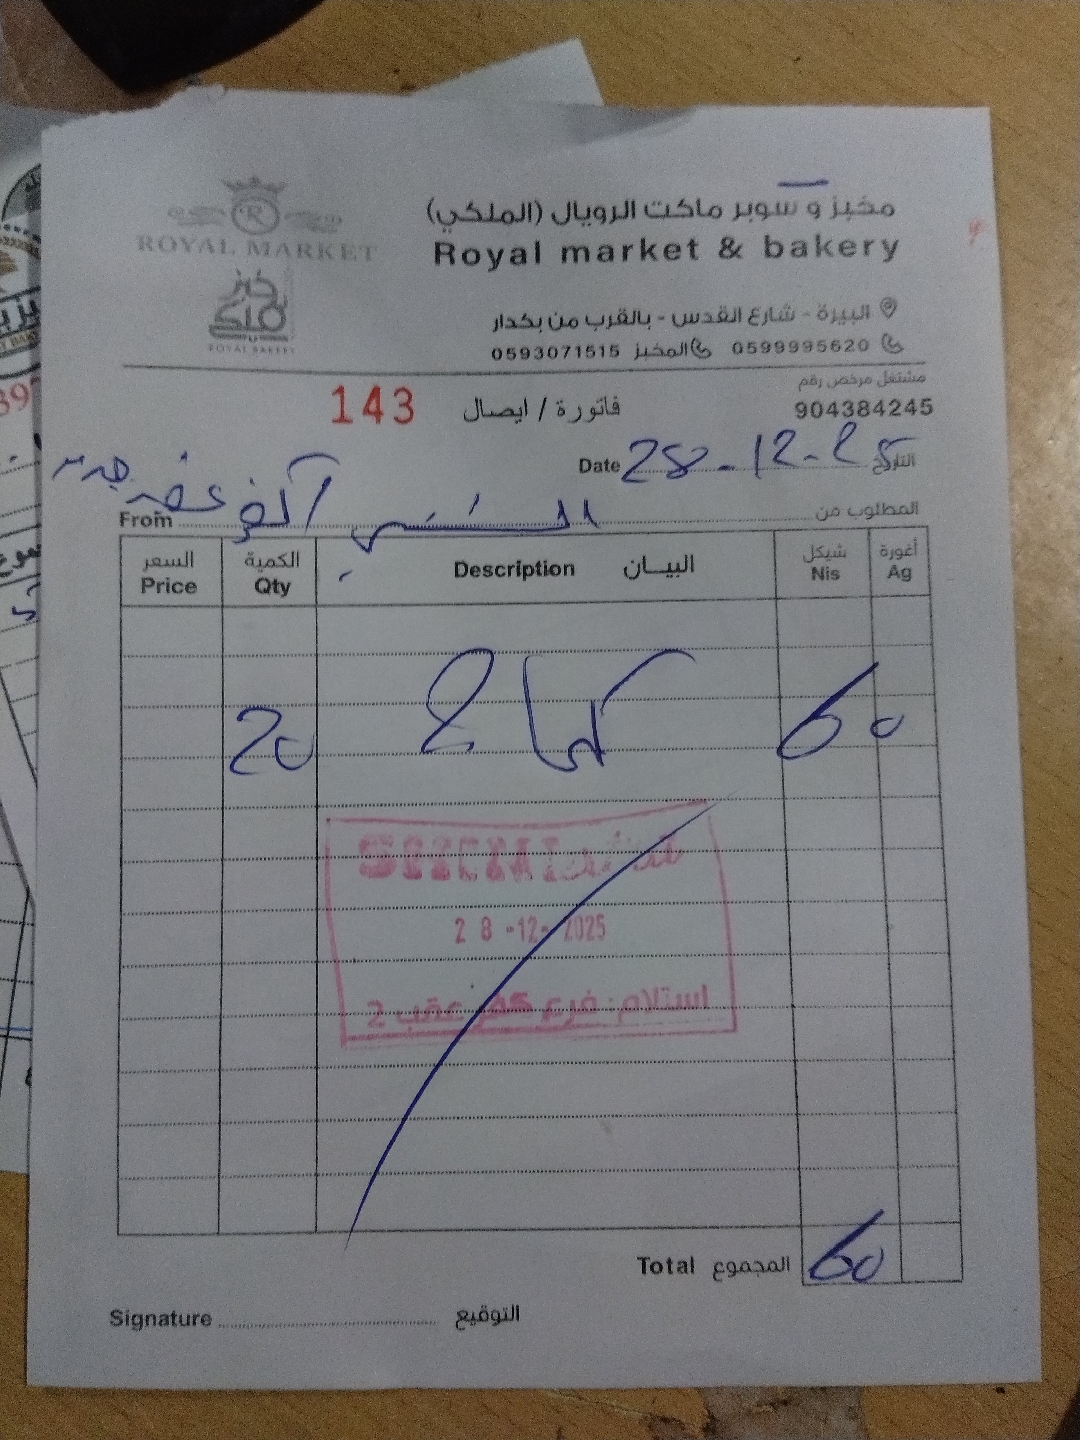 مخبز و سوبر ماكت الرويال (الملكي)
Royal market & bakery
ROYAL MARKET
خبز ملكي
ROYAL BAKERY
البيرة - شارع القدس - بالقرب من بكدار
0599995620 المخبز 0593071515
مشتغل مرخص رقم
904384245
فاتورة / ايصال 143
التاريخ 28-12-25 Date
المطلوب من From
السعر Price الكمية Qty البيــان Description شيكل Nis أغورة Ag
20 كماج 60
28-12-2025
استلام: فرع كفر عقب 2
Total المجموع 60
Signature التوقيع